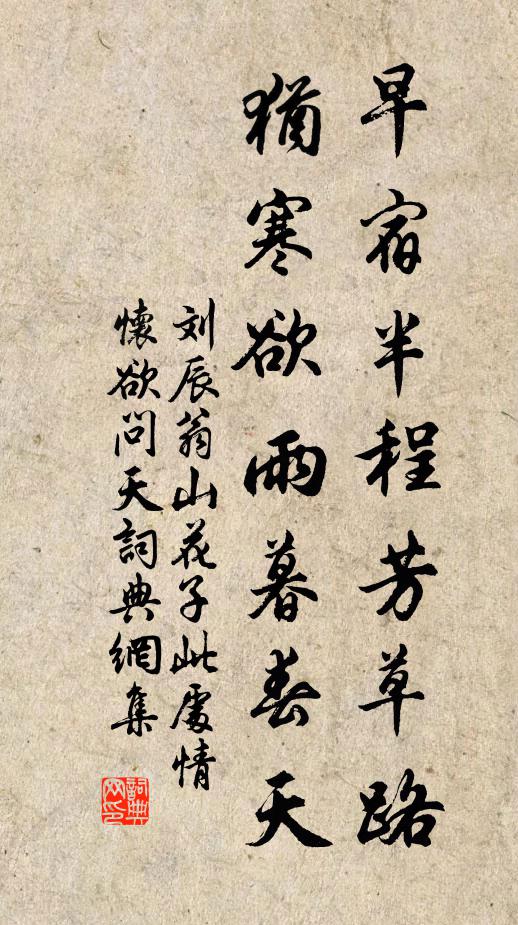 早宿半程芳草路
猶寒欲雨暮春天
刘辰翁山花子此處情
懷欲問天詞典網集
詞典网印